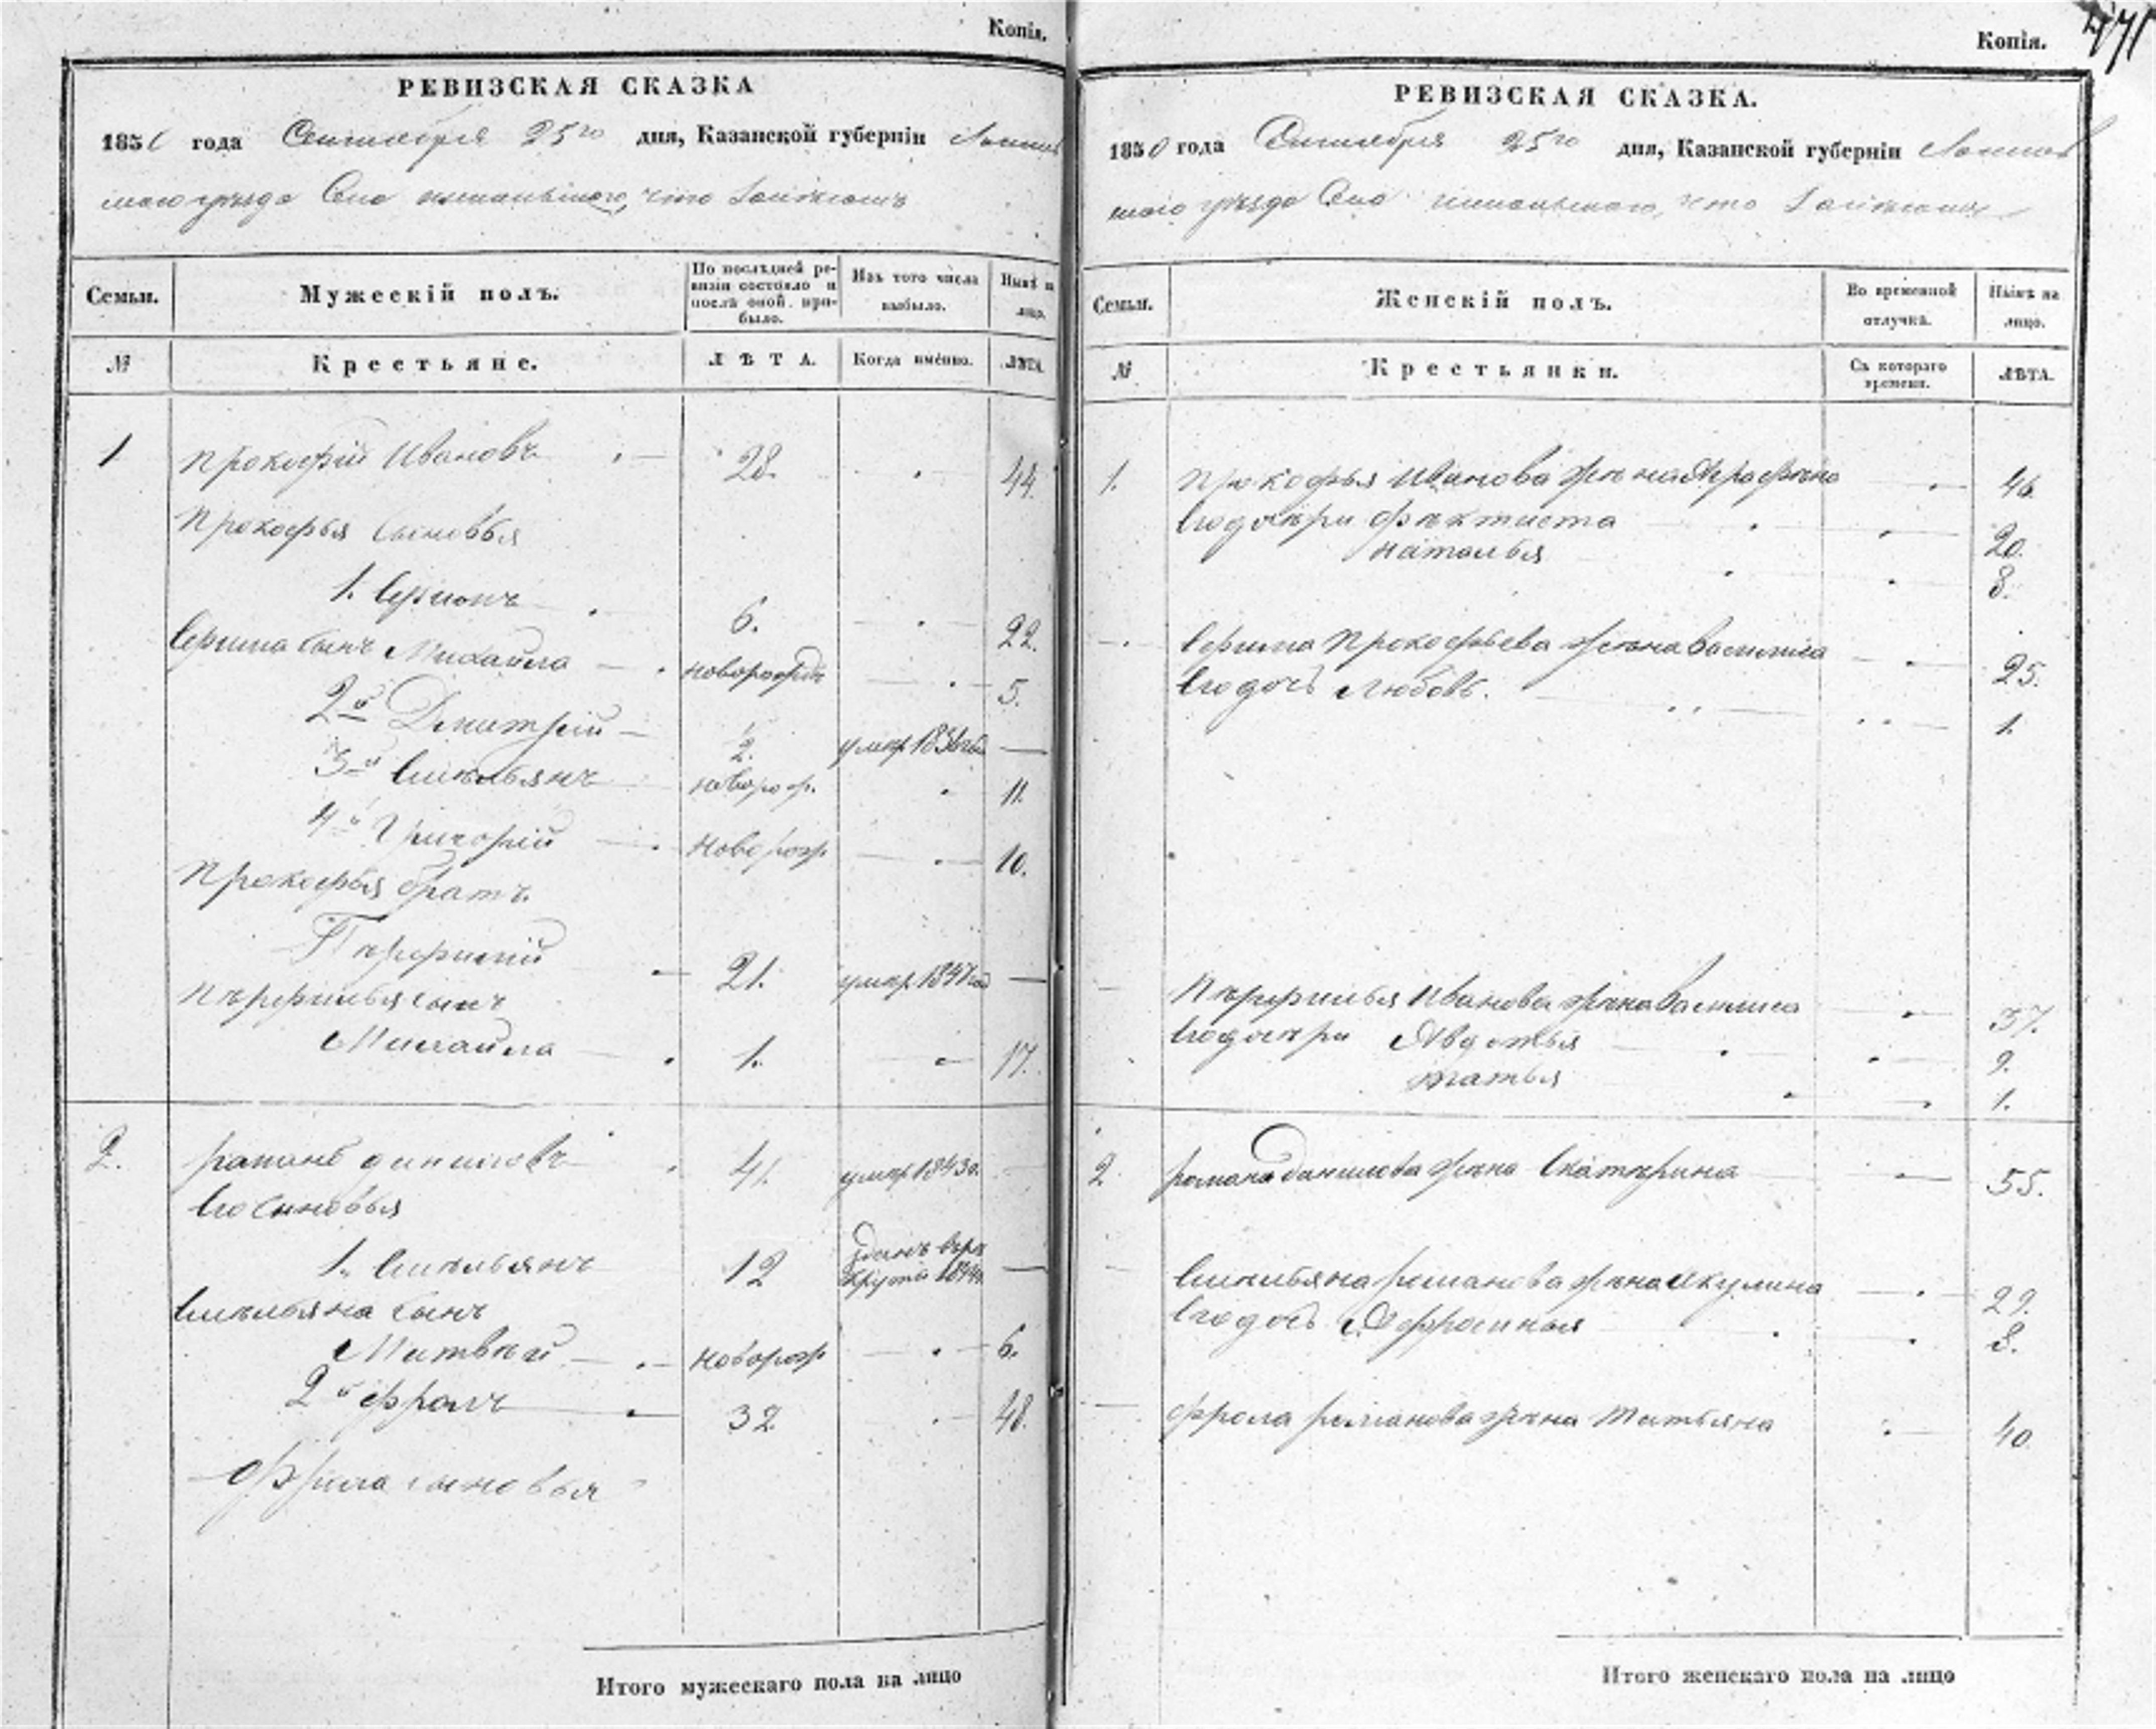 Копія.
РЕВИЗСКАЯ СКАЗКА
1850 года Сентября 25го дня, Казанской губерніи
уѣзда что
Семьи.
Мужескій полъ.
По послѣдней ре-
визіи состояло и
послѣ оной при-
было.
Изъ того числа
выбыло.
Нынѣ на
лицо.
№
Крестьяне.
ЛѢТА.
Когда именно.
ЛѢТА.
1 Прокофій Ивановъ 28. 44.
Прокофья сыновья
1. Ефимъ 6. 22.
Ефима сынъ Михайла новорожд 5.
2й Дмитрій 1/2.
3й Емельянъ новорож. 11.
4й Григорій новорож 10.
Прокофья братъ.
Перфилий 21. умер. 1847 год
Перфилья сынъ
Михайла 1. 17.
2. романъ даниловъ 41. умер. 1843 г.
Его сыновья
1. Емельянъ 12
Емельяна сынъ
Матвей новорож 6.
2й фролъ 32. 48.
Фрола сыновья
Итого мужескаго пола на лицо
Копія.
471
РЕВИЗСКАЯ СКАЗКА.
1850 года Сентября 25го дня, Казанской губерніи
уѣзда что
Семьи.
Женскій полъ.
Во временной
отлучкѣ.
Нынѣ на
лицо.
№
Крестьянки.
Съ котораго
времени.
ЛѢТА.
1. Прокофья Иванова жена Аграфена 46.
Его дочери Фектиста 20.
наталья 8.
Ефима Прокофьева жена Василиса 25.
Его дочь Любовь. 1.
Перфилья Иванова жена Василиса 37.
Его дочери Авдотья 9.
1.
2. романа данилова жена Екатерина 55.
Емельяна романова жена Акулина 29.
Его дочь Афросинья 8.
фрола романова жена Татьяна 40.
Итого женскаго пола на лицо